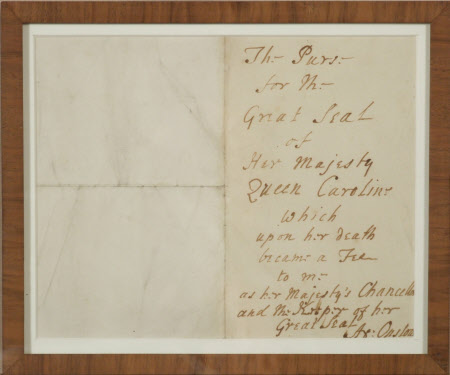 The Purse
for the
Great Seal
of
Her Majesty
Queen Caroline
which
upon her death
became a Fee
to me
as her Majesty's Chancellor
and the Keeper of her
Great Seal
Ar: Onslow